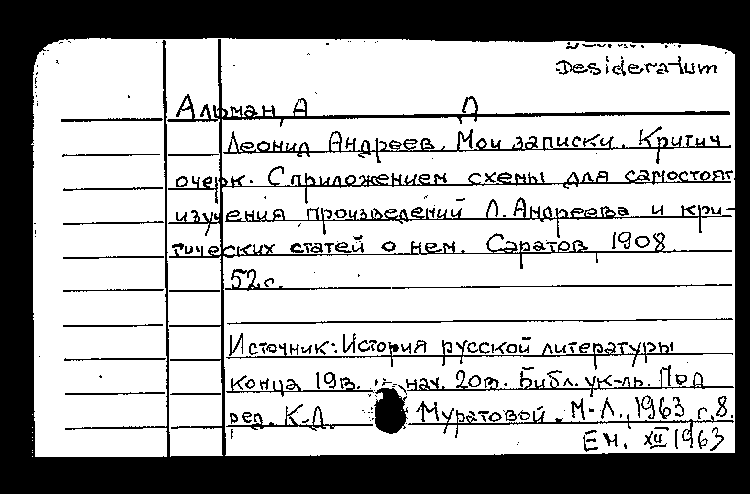 Desideratum
Альман, А Л
Леонид Андреев. Мои записки. Критич
очерк. С приложением схемы для самостоят
изучения произведений Л. Андреева и кри-
тических статей о нем. Саратов, 1908
52 с.
Источник: История русской литературы
конца 19в. и нач. 20в. Библ. ук-ль. Под
ред. К.Д. Муратовой. М-Л., 1963, с. 8.
Ен. XII 1963